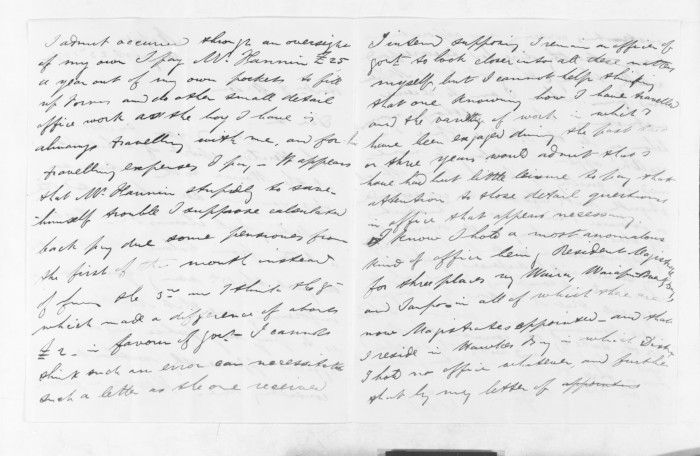 I admit occurred through an oversight
of my own I pay Mr Hannin £25
a year out of my own pockets to fill
up Forms and do other small detail
office work as the boy I have is
always travelling with me, and for his
travelling expenses I pay, - It appears
that Mr Hannin stupidly to save
himself trouble I suppose calculated
back pay due some pensioners from
the first of the month instead
of from the 3rd or I think the 8th
which made a difference of about
£2 - in favour of Govt - I cannot
think such an error can necessitate
such a letter as the one received
I intend supposing I remain an officer of
Govt to look closer into all these matters
myself, but I cannot help thinking
that one knowing how I have travelled
and the variety of work in which I
have been engaged during the past two
or three years would admit that I
have had but little leisure to pay that
attention to those detail questions
in office that appears necessary.
I know I hold a most anomalous
kind of office being Resident Magistrate
for three places viz Wairoa,
and Taupo in all of which there are
now Magistrates appointed - and that
I reside in Hawkes Bay in which Dist
I hold no office whatever, and further
that by my letter of appointment